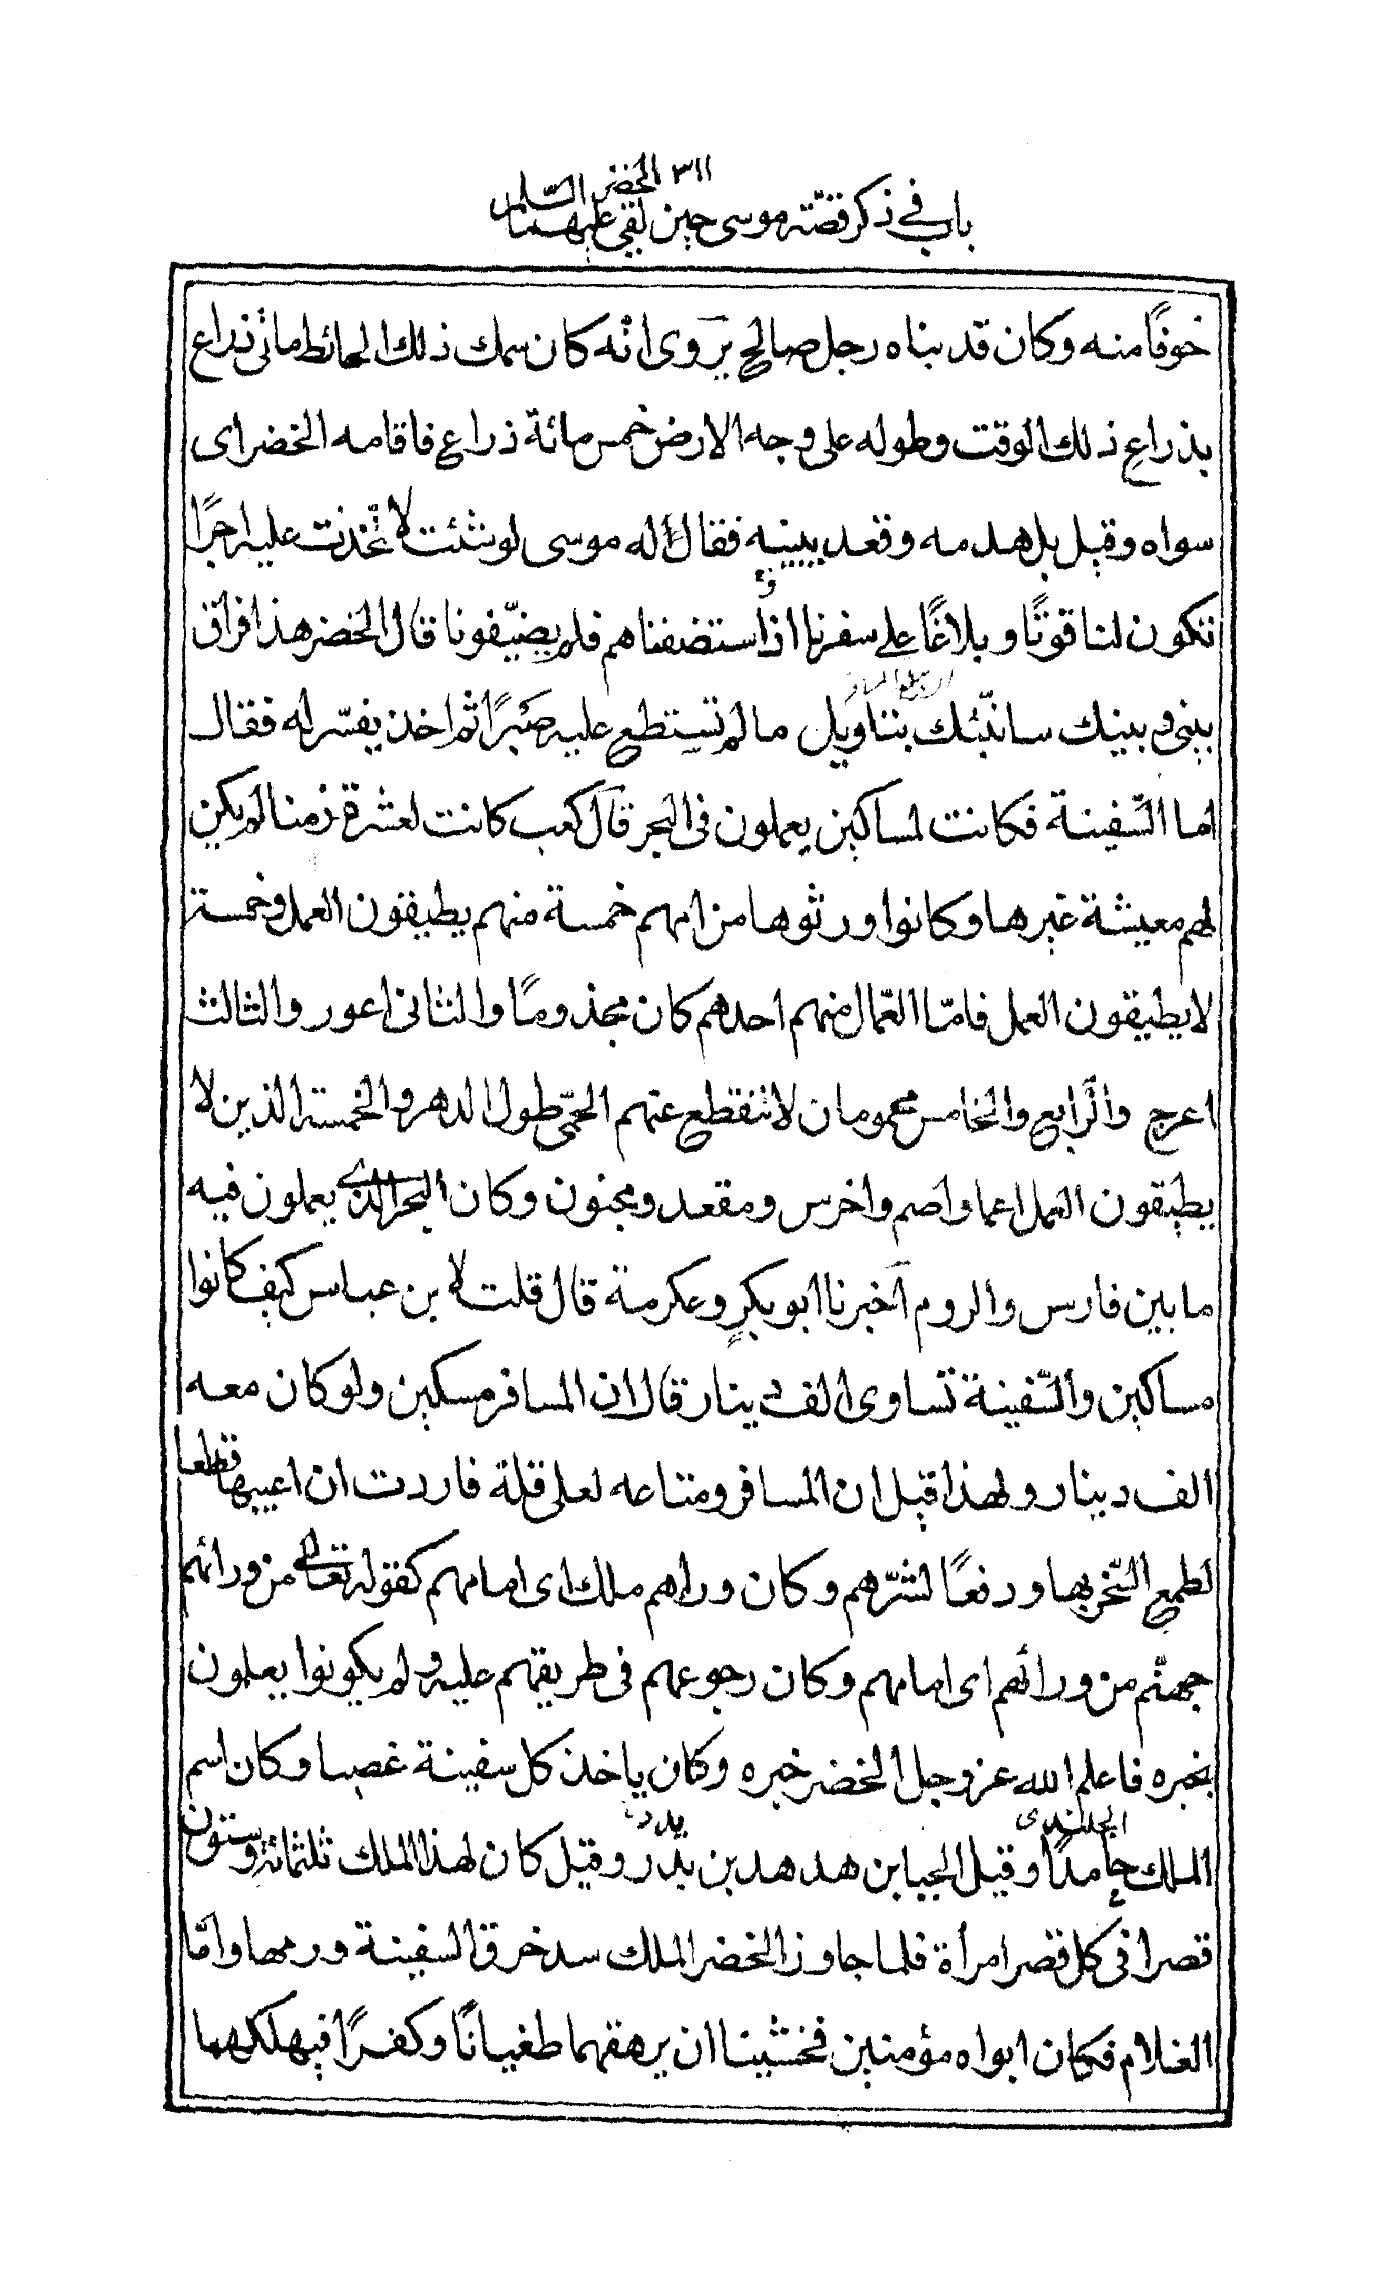 ٣١١
باب في ذكر قصّة موسى حين لقى الخضر عليهما السّلام
خوفًا منه وكان قد بناه رجل صالح يروى انّه كان سمك ذلك الحائط مائتى ذراع
بذراع ذلك الوقت وطوله على وجه الارض خمس مائة ذراع فاقامه الخضر اى
سواه وقيل بل هدمه وقعد يبنيه فقال له موسى لو شئت لاتّخذت عليه اجرًا
تكون لنا قوتًا وبلاغًا على سفرنا اذ استضفناهم فلم يضيّفونا قال الخضر هذا فراق
بينى وبينك سانبّئك بتاويل ما لم تستطع عليه صبرًا ثم اخذ يفسّر له فقال
اما السّفينة فكانت لمساكين يعملون فى البحر قال كعب كانت لعشرة زمنا لم يكن
لهم معيشة غيرها وكانوا ورثوها من ابيهم خمسة منهم يطيقون العمل وخمسة
لا يطيقون العمل فامّا العمّال منهم احدهم كان مجذومًا والثانى اعور والثالث
اعرج والرّابع والخامس محمومان لا تنقطع عنهم الحمّى طول الدهر والخمسة الذين لا
يطيقون العمل اعما واصم واخرس ومقعد ومجنون وكان البحر الذى يعملون فيه
ما بين فارس والروم اخبرنا ابو بكرٍ وعكرمة قال قلت لابن عباس كيف كانوا
مساكين والسّفينة تساوى الف دينار قال ان المسافر مسكين ولو كان معه
الف دينار ولهذا قيل ان المسافر ومتاعه لعلى قلة فاردت ان اعيبها قطعا
لطمع التّخر بها ودفعًا لشرّهم وكان وراهم ملك اى امامهم كقوله تعالى من ورائهم
جهنّم من ورائهم اى امامهم وكان رجوعهم فى طريقهم عليه ولم يكونوا يعلمون
بخبره فاعلم الله عز وجل الخضر خبره وكان ياخذ كل سفينة غصبا وكان اسم
الجلندى بدد
الملك جامدًا وقيل الجيا بن هدهد بن بدر وقيل كان لهذا الملك ثلثمائة وستون
قصرا فى كل قصر امرأة فلما جاوز الخضر الملك سد خرق السفينة ورمها وامّا
الغلام فكان ابواه مؤمنين فخشينا ان يرهقهما طغيانًا وكفرًا فيهلكهما